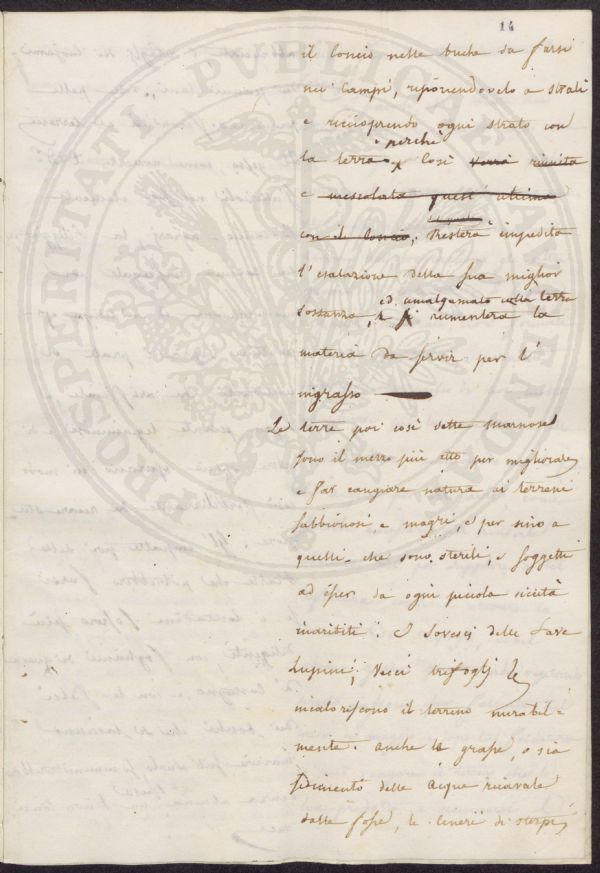 14
il concio nelle buche da farsi
nei campi, riponendovelo a strati
e ricoprendo ogni strato con
perchè
la terra, Così verrà riunita
e mescolata quest' ultima
con il concio, Resterà impedita
l'esalazione della sua miglior
ed amalgamato colla terra
sostanza, e si rumenterà la
materia da servir per l'
ingrasso
Le terre poi così dette marnose
sono il mezzo più atto per migliorare
e far cangiare natura ai terreni
sabbionosi e magri, e per sino a
quelli che sono sterili, e soggetti
ad esser da ogni piccola siccità
inariditi. I Sovesci delle Fave
Lupini, Vecci trifoglj
incaloriscono il terreno mirabil=
mente. anche le grasse, o sia
sedimento delle acque ricavate
dalle fosse, le ceneri di sterpi
PROSPERITATI PUBLICAE